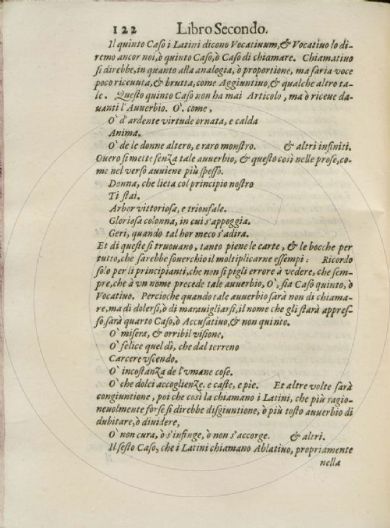 122 Libro Secondo.
Il quinto Caso i Latini dicono Vocatiuum, & Vocatiuo lo di-
remo ancor noi, ò quinto Caso, ò Caso di chiamare. Chiamatiuo
si direbbe, in quanto alla analogia, ò proportione, ma saria voce
poco riceuuta, & brutta, come Aggiuntiuo, & qualche altro ta-
le. Questo quinto Caso non ha mai Articolo, ma ò riceue da-
uanti l'Auuerbio. O'. come,
O' d'ardente virtude ornata, e calda
Anima.
O' de le donne altero, e raro monstro. & altri infiniti.
Ouero si mette senza tale auuerbio, & questo così nelle prose, co-
me nel verso auuiene più spesso.
Donna, che lieta col principio nostro
Ti stai.
Arbor vittoriosa, e trionfale.
Gloriosa colonna, in cui s'appoggia.
Geri, quando tal hor meco s'adira.
Et di queste si truouano, tanto piene le carte, & le bocche per
tutto, che sarebbe souerchio il moltiplicarne essempi: Ricordo
solo per li principianti, che non si pigli errore à vedere, che sem-
pre, che à vn nome precede tale auuerbio, O', sia Caso quinto, ò
Vocatiuo. Percioche quando tale auuerbio sarà non di chiama-
re, ma di dolersi, ò di marauigliarsi, il nome che gli starà appres-
so sarà quarto Caso, ò Accusatiuo, & non quinto.
O' misera, & orribil visione,
O' felice quel dì, che dal terreno
Carcere vscendo.
O' incostanza de l'vmane cose.
O' che dolci accoglienze, e caste, e pie. Et altre volte sarà
congiuntione, poi che così la chiamano i Latini, che più ragio-
neuolmente forse si direbbe disgiuntione, ò più tosto auuerbio di
dubitare, ò diuidere,
O' non cura, ò s'infinge, ò non s'accorge. & altri.
Il sesto Caso, che i Latini chiamano Ablatiuo, propriamente
nella